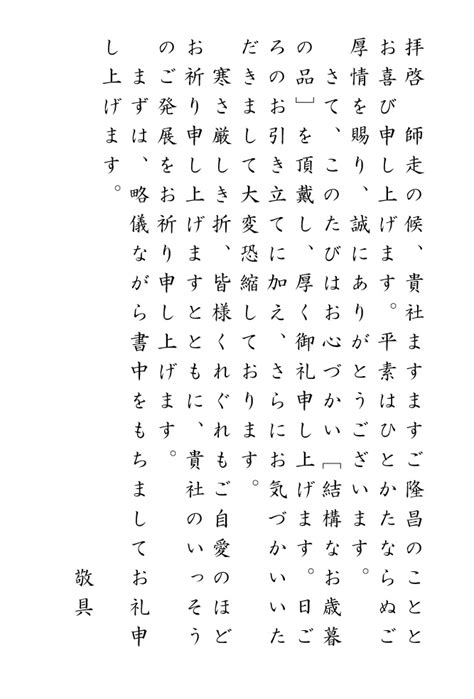 拝啓　師走の候、貴社ますますご隆昌のことと
お喜び申し上げます。平素はひとかたならぬご
厚情を賜り、誠にありがとうございます。
　さて、このたびはお心づかい［結構なお歳暮
の品］を頂戴し、厚く御礼申し上げます。日ご
ろのお引き立てに加え、さらにお気づかいいた
だきまして大変恐縮しております。
　寒さ厳しき折、皆様くれぐれもご自愛のほど
お祈り申し上げますとともに、貴社のいっそう
のご発展をお祈り申し上げます。
　まずは、略儀ながら書中をもちましてお礼申
し上げます。
敬具